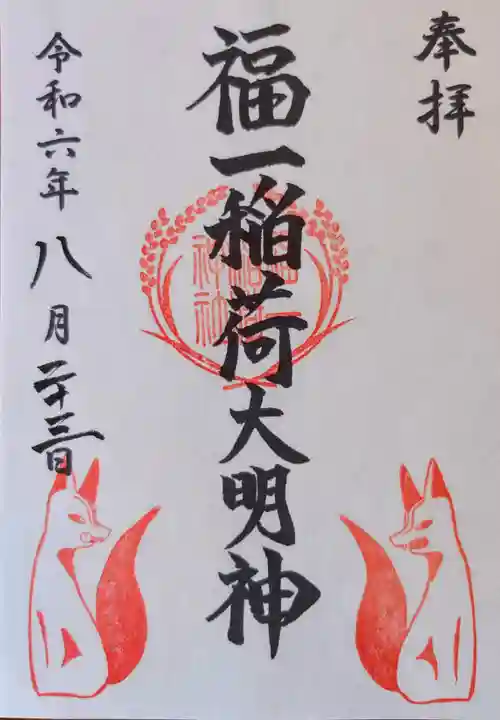 奉拝
福一稲荷大明神
令和六年八月二十三日